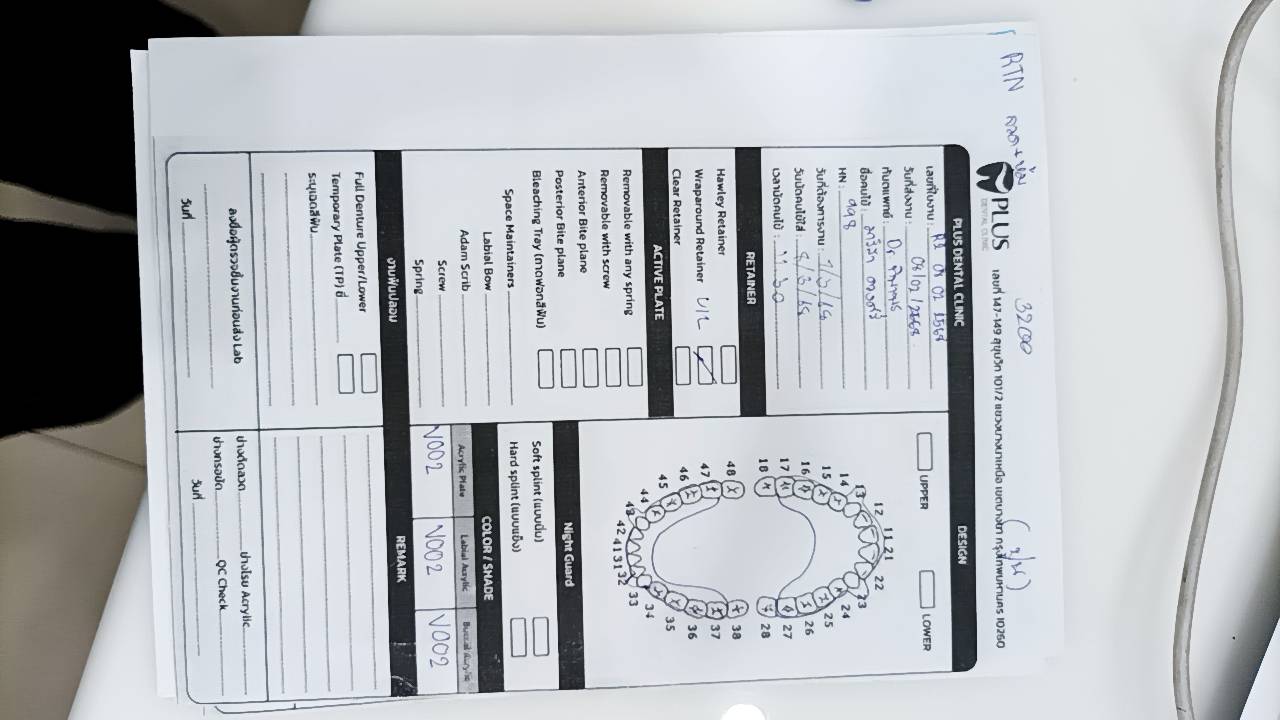 RTN ลวด + ใส
3200
PLUS
DENTAL CLINIC
เลขที่ 147-149 สุขุมวิท 101/2 แขวงบางนาเหนือ เขตบางนา กรุงเทพมหานคร 10260
PLUS DENTAL CLINIC
เลขที่ใบงาน :
วันที่ส่งงาน : 04/01/2568
ทันตแพทย์ : Dr.
ชื่อคนไข้ :
HN : 998
วันที่ต้องการงาน :
วันนัดคนไข้ใส่ :
เวลานัดคนไข้ :
RETAINER
Hawley Retainer
Wraparound Retainer U/L
Clear Retainer
ACTIVE PLATE
Removable with any spring
Removable with screw
Anterior Bite plane
Posterior Bite plane
Bleaching Tray (ถาดฟอกสีฟัน)
Space Maintainers
Labial Bow
Adam Scrib
Screw
Spring
งานฟันปลอม
Full Denture Upper/Lower
Temporary Plate (TP) ซี่
ระบุเฉดสีฟัน
ลงชื่อผู้ตรวจชิ้นงานก่อนส่ง Lab
วันที่
DESIGN
UPPER LOWER
18 17 16 15 14 13 12 11 21 22 23 24 25 26 27 28
48 47 46 45 44 43 42 41 31 32 33 34 35 36 37 38
Night Guard
Soft splint (แบบนิ่ม)
Hard splint (แบบแข็ง)
COLOR / SHADE
Acrylic Plate Labial Acrylic Buccal Acrylic
V002 V002 V002
REMARK
ช่างดัดลวด ช่างโรย Acrylic
ช่างกรอขัด QC Check
วันที่